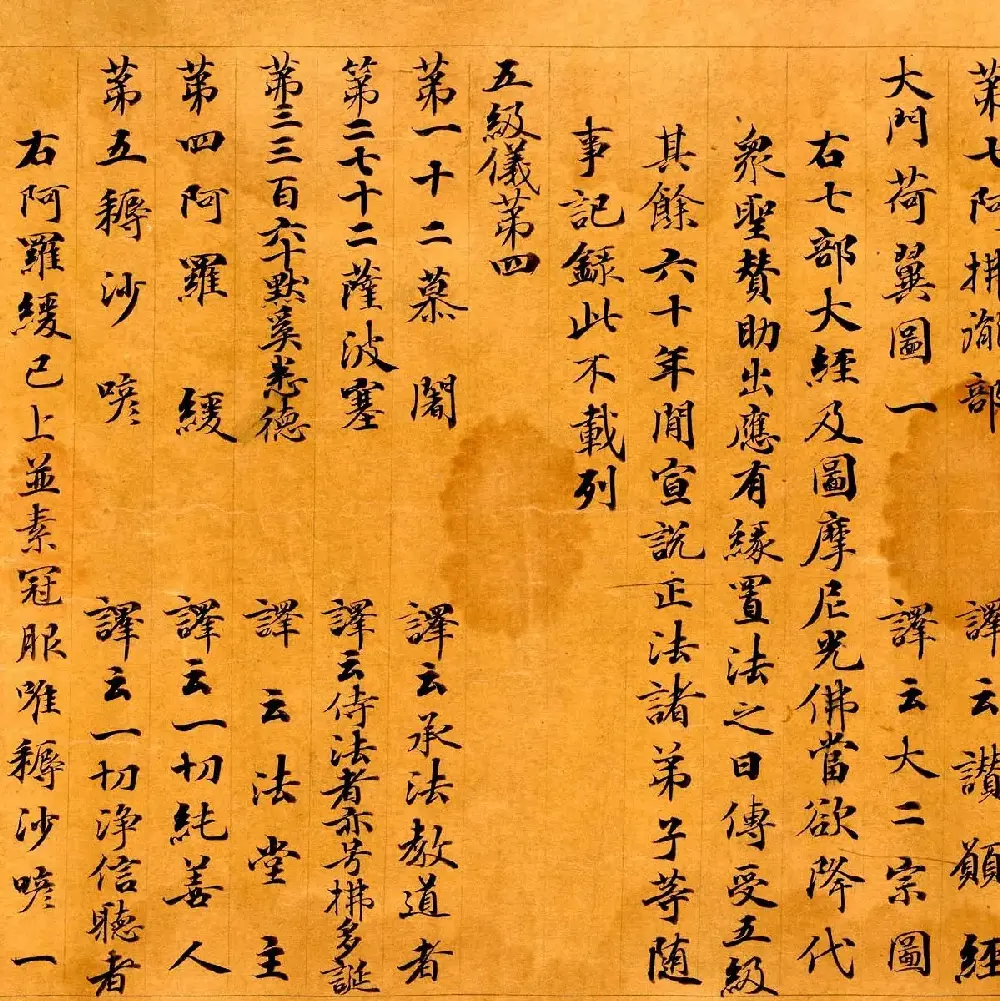 第七阿拂胤部 譯云讚願經
大門荷翼圖一 譯云大二宗圖
右七部大經及圖摩尼光佛當欲降代
衆聖贊助出應有緣置法之日傳受五級
其餘六十年間宣說正法諸弟子等随
事記録此不載列
五級儀第四
第一十二慕闍 譯云承法教道者
第二七十二薩波塞 譯云侍法者亦号拂多誕
第三三百六十默奚悉德 譯云法堂主
第四阿羅緩 譯云一切純善人
第五耨沙喭 譯云一切淨信聽者
右阿羅緩已上並素冠服唯耨沙喭一